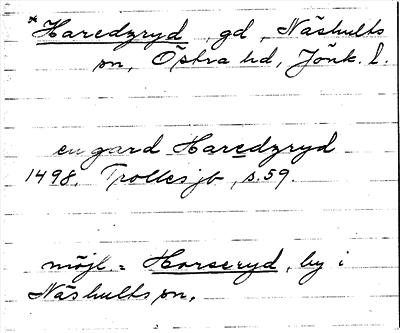 *Haredzryd, gd, Näshults
sn, Östra hd, Jönk. l.
en gard Haredzryd
1498. Trolles jb, s. 59.
möjl. = Horseryd, by i
Näshults sn.